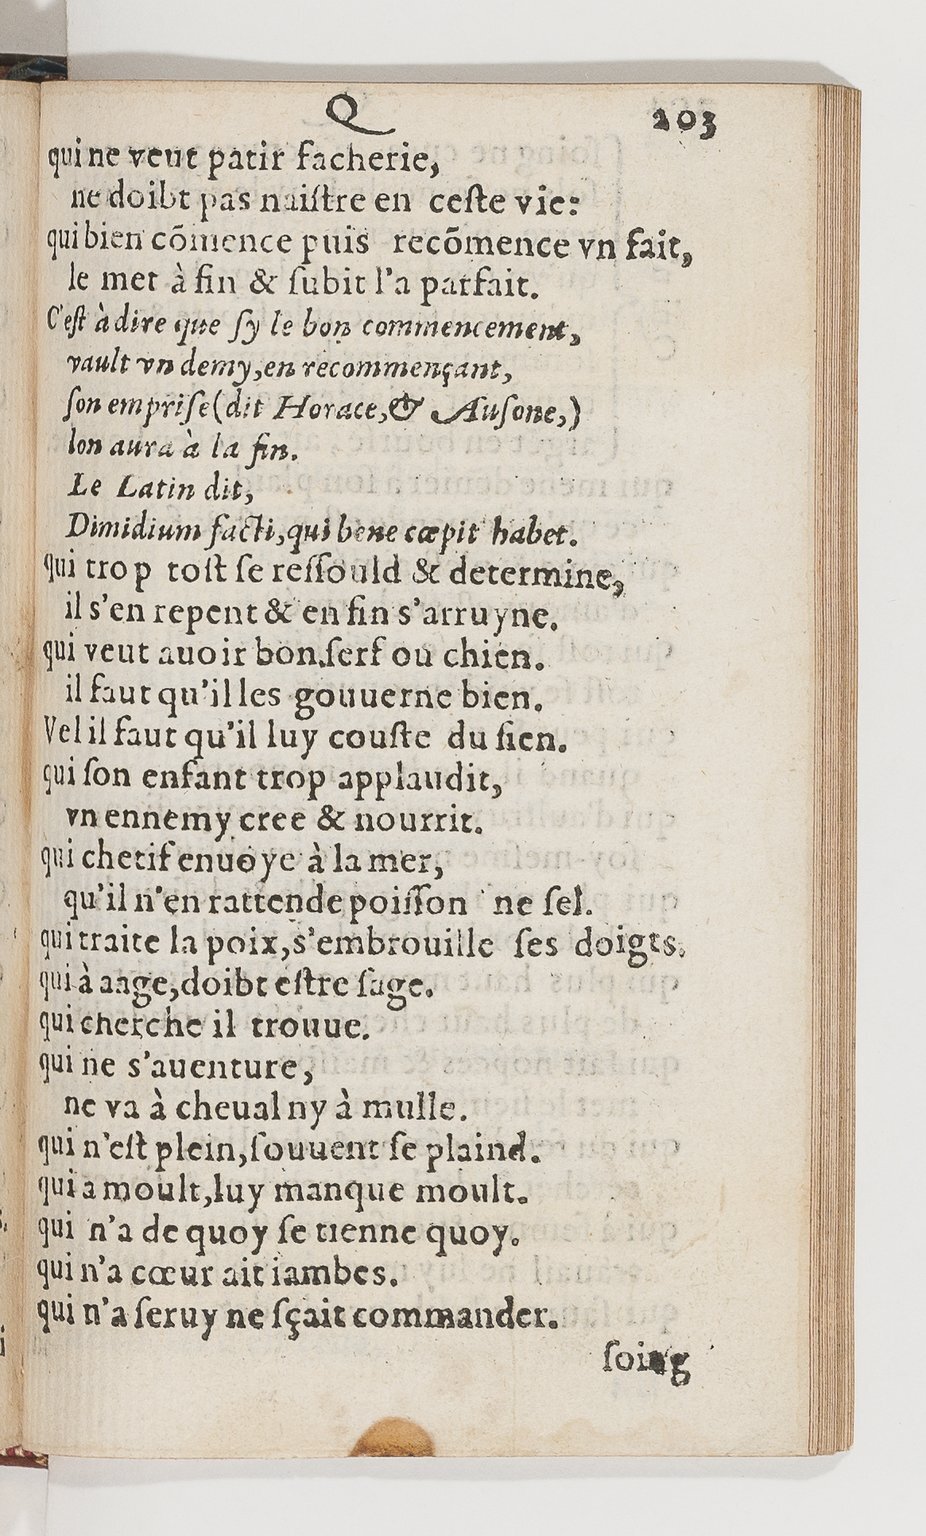 Q 203
qui ne veut patir facherie,
ne doibt pas naiſtre en ceſte vie:
qui bien cõmence puis recõmence vn fait,
le met à fin & ſubit l'a parfait.
C'eſt à dire que ſy le bon commencement,
vault vn demy, en recommençant,
ſon empriſe (dit Horace, & Auſone,)
lon aura à la fin.
Le Latin dit,
Dimidium facti, qui bene cœpit habet.
qui trop toſt ſe reſſould & determine,
il s'en repent & en fin s'arruyne.
qui veut auoir bon ſerf ou chien.
il faut qu'il les gouuerne bien.
Vel il faut qu'il luy couſte du ſien.
qui ſon enfant trop applaudit,
vn ennemy cree & nourrit.
qui chetif enuoye à la mer,
qu'il n'en rattende poiſſon ne ſel.
qui traite la poix, s'embrouille ſes doigts.
qui à aage, doibt eſtre ſage.
qui cherche il trouue.
qui ne s'auenture,
ne va à cheual ny à mulle.
qui n'eſt plein, ſouuent ſe plaind.
qui a moult, luy manque moult.
qui n'a de quoy ſe tienne quoy.
qui n'a cœur ait iambes.
qui n'a ſeruy ne ſçait commander.
ſoing